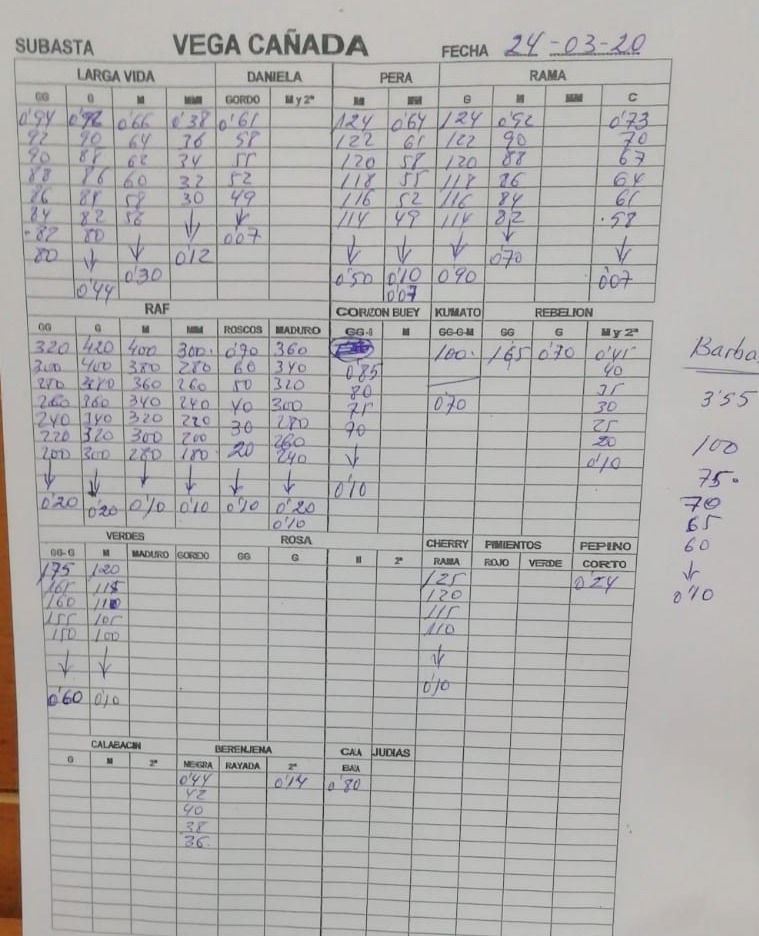 SUBASTA VEGA CAÑADA FECHA 24-03-20
LARGA VIDA DANIELA PERA RAMA
GG G M MM GORDO M y 2ª M MM G M MM C
0'94 0'92 0'66 0'38 0'61 124 0'64 124 0'92 0'73
92 90 64 36 58 122 61 122 90 70
90 88 62 34 55 120 58 120 88 67
88 86 60 32 52 118 55 118 86 64
86 84 58 30 49 116 52 116 84 61
84 82 56 ↓ ↓ 114 49 114 82 58
82 80 ↓ 0'07 ↓ ↓ ↓ ↓ ↓
80 ↓ 0'30 0'12 0'50 0'10 0'90 0'70 0'07
0'44 0'07
RAF CORAZON BUEY KUMATO REBELION
GG G M MM ROSCOS MADURO GG-G M GG-G-M GG G M y 2ª
320 420 400 300 0'70 360 100 165 0'70 0'45
300 400 380 280 60 340 0'85 40
280 380 360 260 50 320 80 35
260 360 340 240 40 300 75 0'70 30
240 340 320 220 30 280 70 25
220 320 300 200 20 260 ↓ 20
200 300 280 180 ↓ 240 0'10
↓ ↓ ↓ ↓ ↓ 0'10
0'20 0'20 0'10 0'10 0'10 0'20
0'10
3'55
100
75
70
65
60
↓
0'10
VERDES ROSA CHERRY PIMIENTOS PEPINO
GG-G M MADURO GORDO GG G M 2ª RAMA ROJO VERDE CORTO
175 120 125 0'24
165 115 120
160 110 115
155 105 110
150 100 ↓
↓ ↓ 0'10
0'60 0'10
CALABACIN BERENJENA CAÑA JUDIAS
G M 2ª NEGRA RAYADA 2ª
0'44 0'14 0'80
42
40
38
36